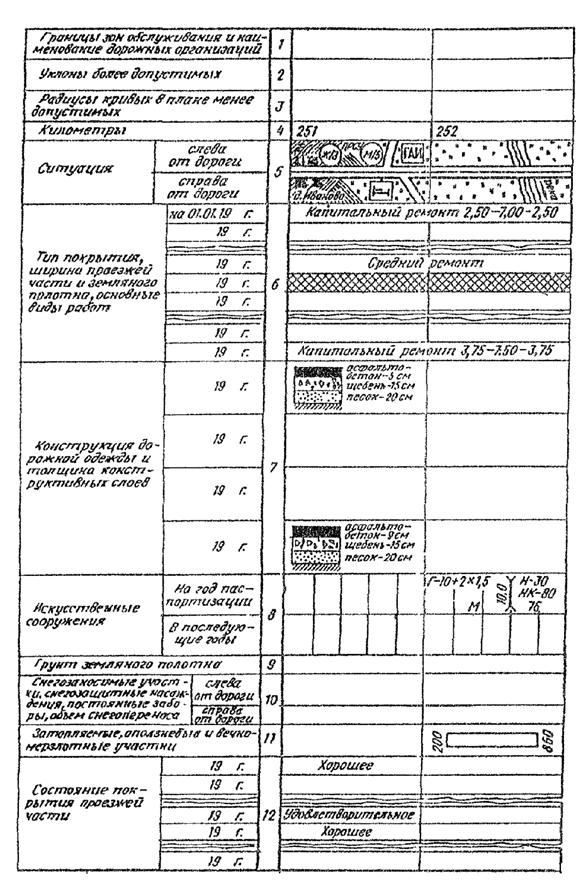 Границы зон обслуживания и наи-
менование дорожных организаций
1
Уклоны более допустимых
2
Радиусы кривых в плане менее
допустимых
3
Километры
4
251
252
Ситуация
слева
от дороги
справа
от дороги
5
Ж/Д
М/Б
ГАИ
д. Иваново
Тип покрытия,
ширина проезжей
части и земляного
полотна, основные
виды работ
на 01.01.19 г.
19 г.
19 г.
19 г.
19 г.
19 г.
19 г.
6
Капитальный ремонт 2,50-7,00-2,50
Средний ремонт
Капитальный ремонт 3,75-7.50-3,75
Конструкция до-
рожной одежды и
толщина конст-
руктивных слоев
19 г.
19 г.
19 г.
19 г.
7
асфальто-
бетон-5 см
щебень-15 см
песок-20 см
асфальто-
бетон-9 см
щебень-15 см
песок-20 см
Искусственные
сооружения
На год пас-
портизации
В последую-
щие годы
8
Г-10+2×1,5
М
10.0
Н-30
НК-80
76
Грунт земляного полотна
9
Снегозаносимые участ-
ки, снегозащитные насаж-
дения, постоянные забо-
ры, объем снегопереноса
слева
от дороги
справа
от дороги
10
Затопляемые, оползневые и вечно-
мерзлотные участки
11
200
850
Состояние пок-
рытия проезжей
части
19 г.
19 г.
19 г.
19 г.
19 г.
12
Хорошее
Удовлетворительное
Хорошее